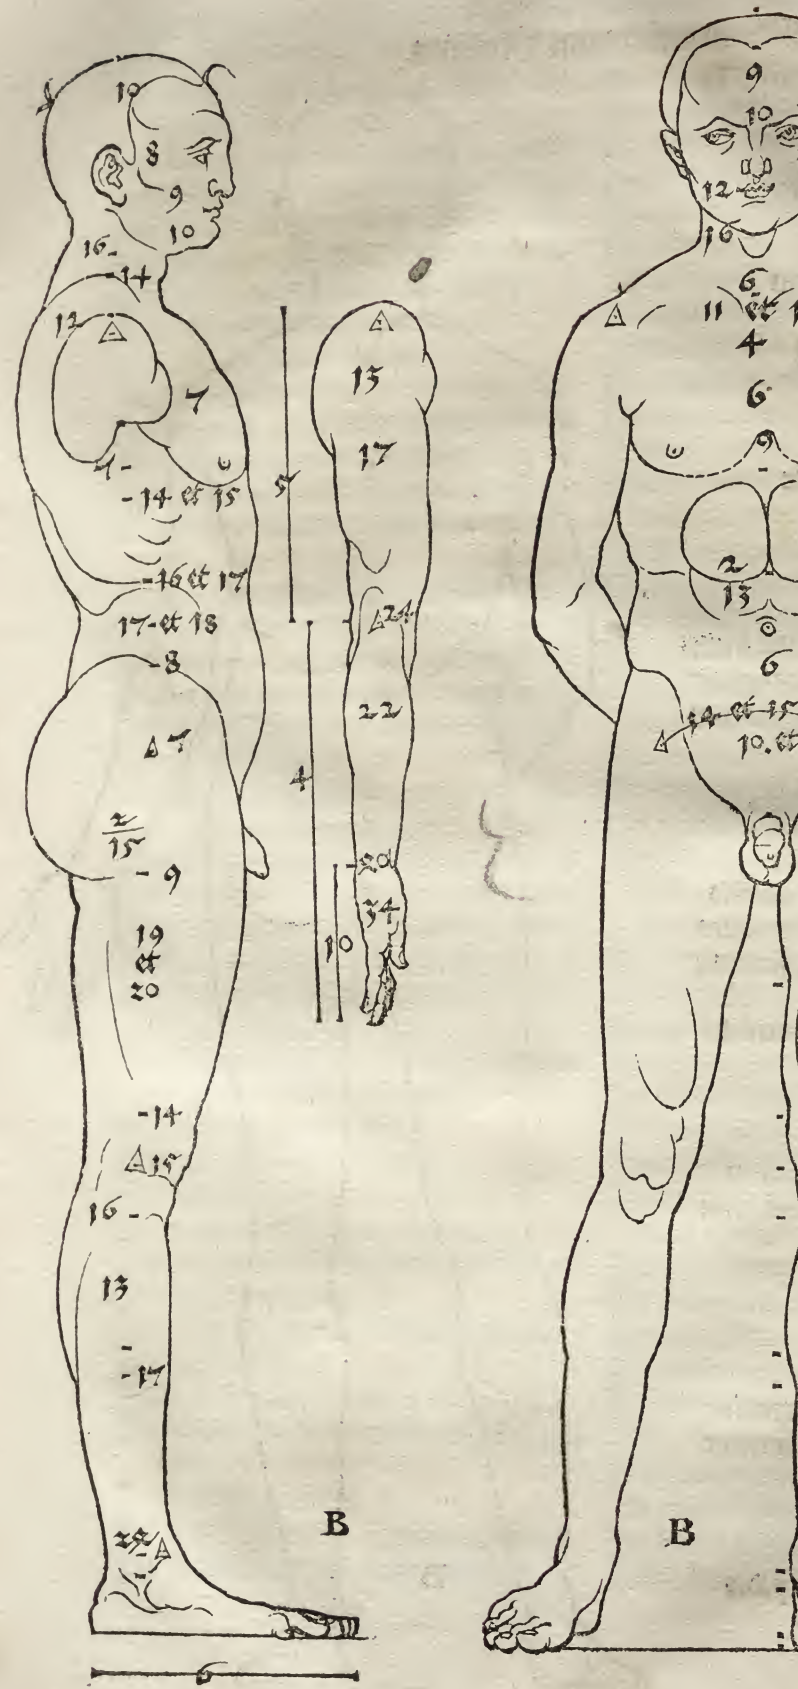 10
8
9
10
16
14
12
7
14 et 15
16 et 17
17 et 18
8
7
2
15
9
19
et
20
14
15
16
13
17
6
5
4
10
13
17
24
22
34
B
9
10
12
16
6
11 et 1
4
6
9
2
13
6
14 et 15
10. et
B